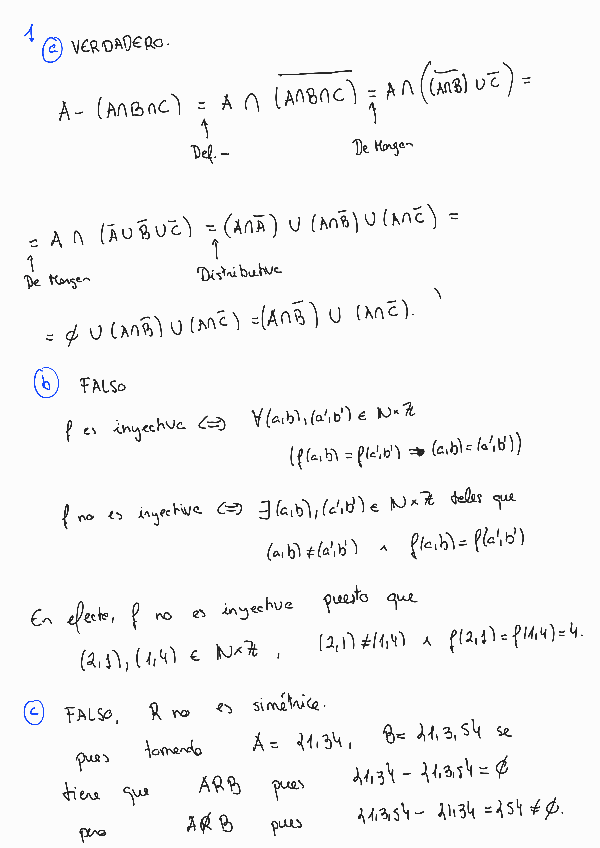 1
(a) VERDADERO.
A - (A∩B∩C) = A ∩ \overline{A∩B∩C} = A ∩ (\overline{(A∩B)} ∪ \overline{C}) =
↑ ↑
Def.- De Morgan
= A ∩ (\overline{A} ∪ \overline{B} ∪ \overline{C}) = (A∩\overline{A}) ∪ (A∩\overline{B}) ∪ (A∩\overline{C}) =
↑ ↑
De Morgan Distributiva
= ∅ ∪ (A∩\overline{B}) ∪ (A∩\overline{C}) = (A∩\overline{B}) ∪ (A∩\overline{C}).
(b) FALSO
f es inyectiva ⇔ ∀(a,b),(a',b') ∈ N×Z
(f(a,b) = f(a',b') → (a,b)=(a',b'))
f no es inyectiva ⇔ ∃(a,b),(a',b') ∈ N×Z tales que
(a,b)≠(a',b') ∧ f(a,b)=f(a',b')
En efecto, f no es inyectiva puesto que
(2,1),(1,4) ∈ N×Z, (2,1)≠(1,4) ∧ f(2,1)=f(1,4)=4.
(c) FALSO, R no es simétrica.
pues tomando A = {1,3}, B = {1,3,5} se
tiene que ARB pues {1,3} - {1,3,5} = ∅
pero A\not{R}B pues {1,3,5} - {1,3} = {5} ≠ ∅.